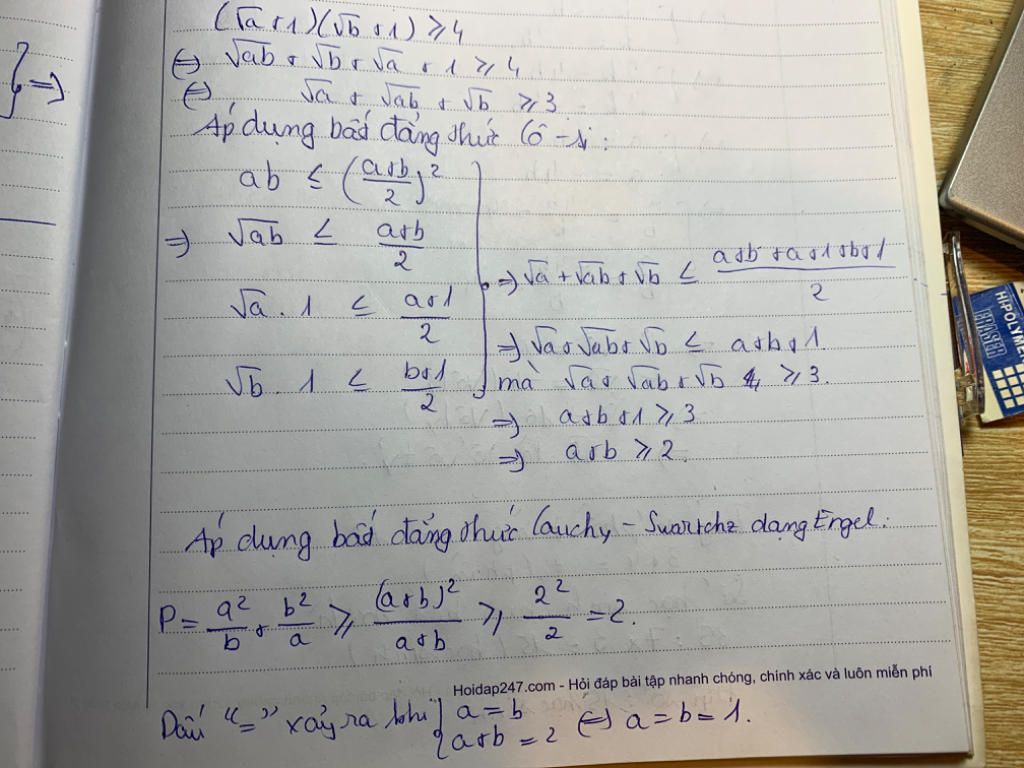 (√a + 1)(√b + 1) ≥ 4
⇔ √ab + √b + √a + 1 ≥ 4
⇔ √a + √ab + √b ≥ 3
Áp dụng bất đẳng thức Cô-si:
ab ≤ (a+b/2)²
⇒ √ab ≤ a+b/2
√a . 1 ≤ a+1/2
√b . 1 ≤ b+1/2
} ⇒
⇒ √a + √ab + √b ≤ a+b+a+1+b+1/2
⇒ √a + √ab + √b ≤ a+b+1.
mà √a + √ab + √b ≥ 3.
⇒ a+b+1 ≥ 3
⇒ a+b ≥ 2.
Áp dụng bất đẳng thức Cauchy - Swartchz dạng Engel:
P = a²/b + b²/a ≥ (a+b)²/a+b ≥ 2²/2 = 2.
Hoidap247.com - Hỏi đáp bài tập nhanh chóng, chính xác và luôn miễn phí
Dấu "=" xảy ra khi { a = b
a+b = 2 ⇔ a = b = 1.
HI-POLYMER
ERASER